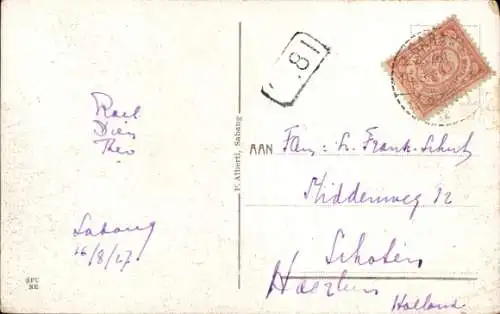 .81
Dien
Theo
Sabang
16/8/27
GFU
NE
F. Alberti, Sabang
AAN Fam: L. Frank-Schut
Middenweg 12
Schoten
Haarlem
Holland